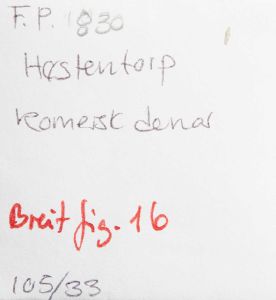 F.P. 1830
Hastentorp
romersk denar
Breit fig. 16
105/33